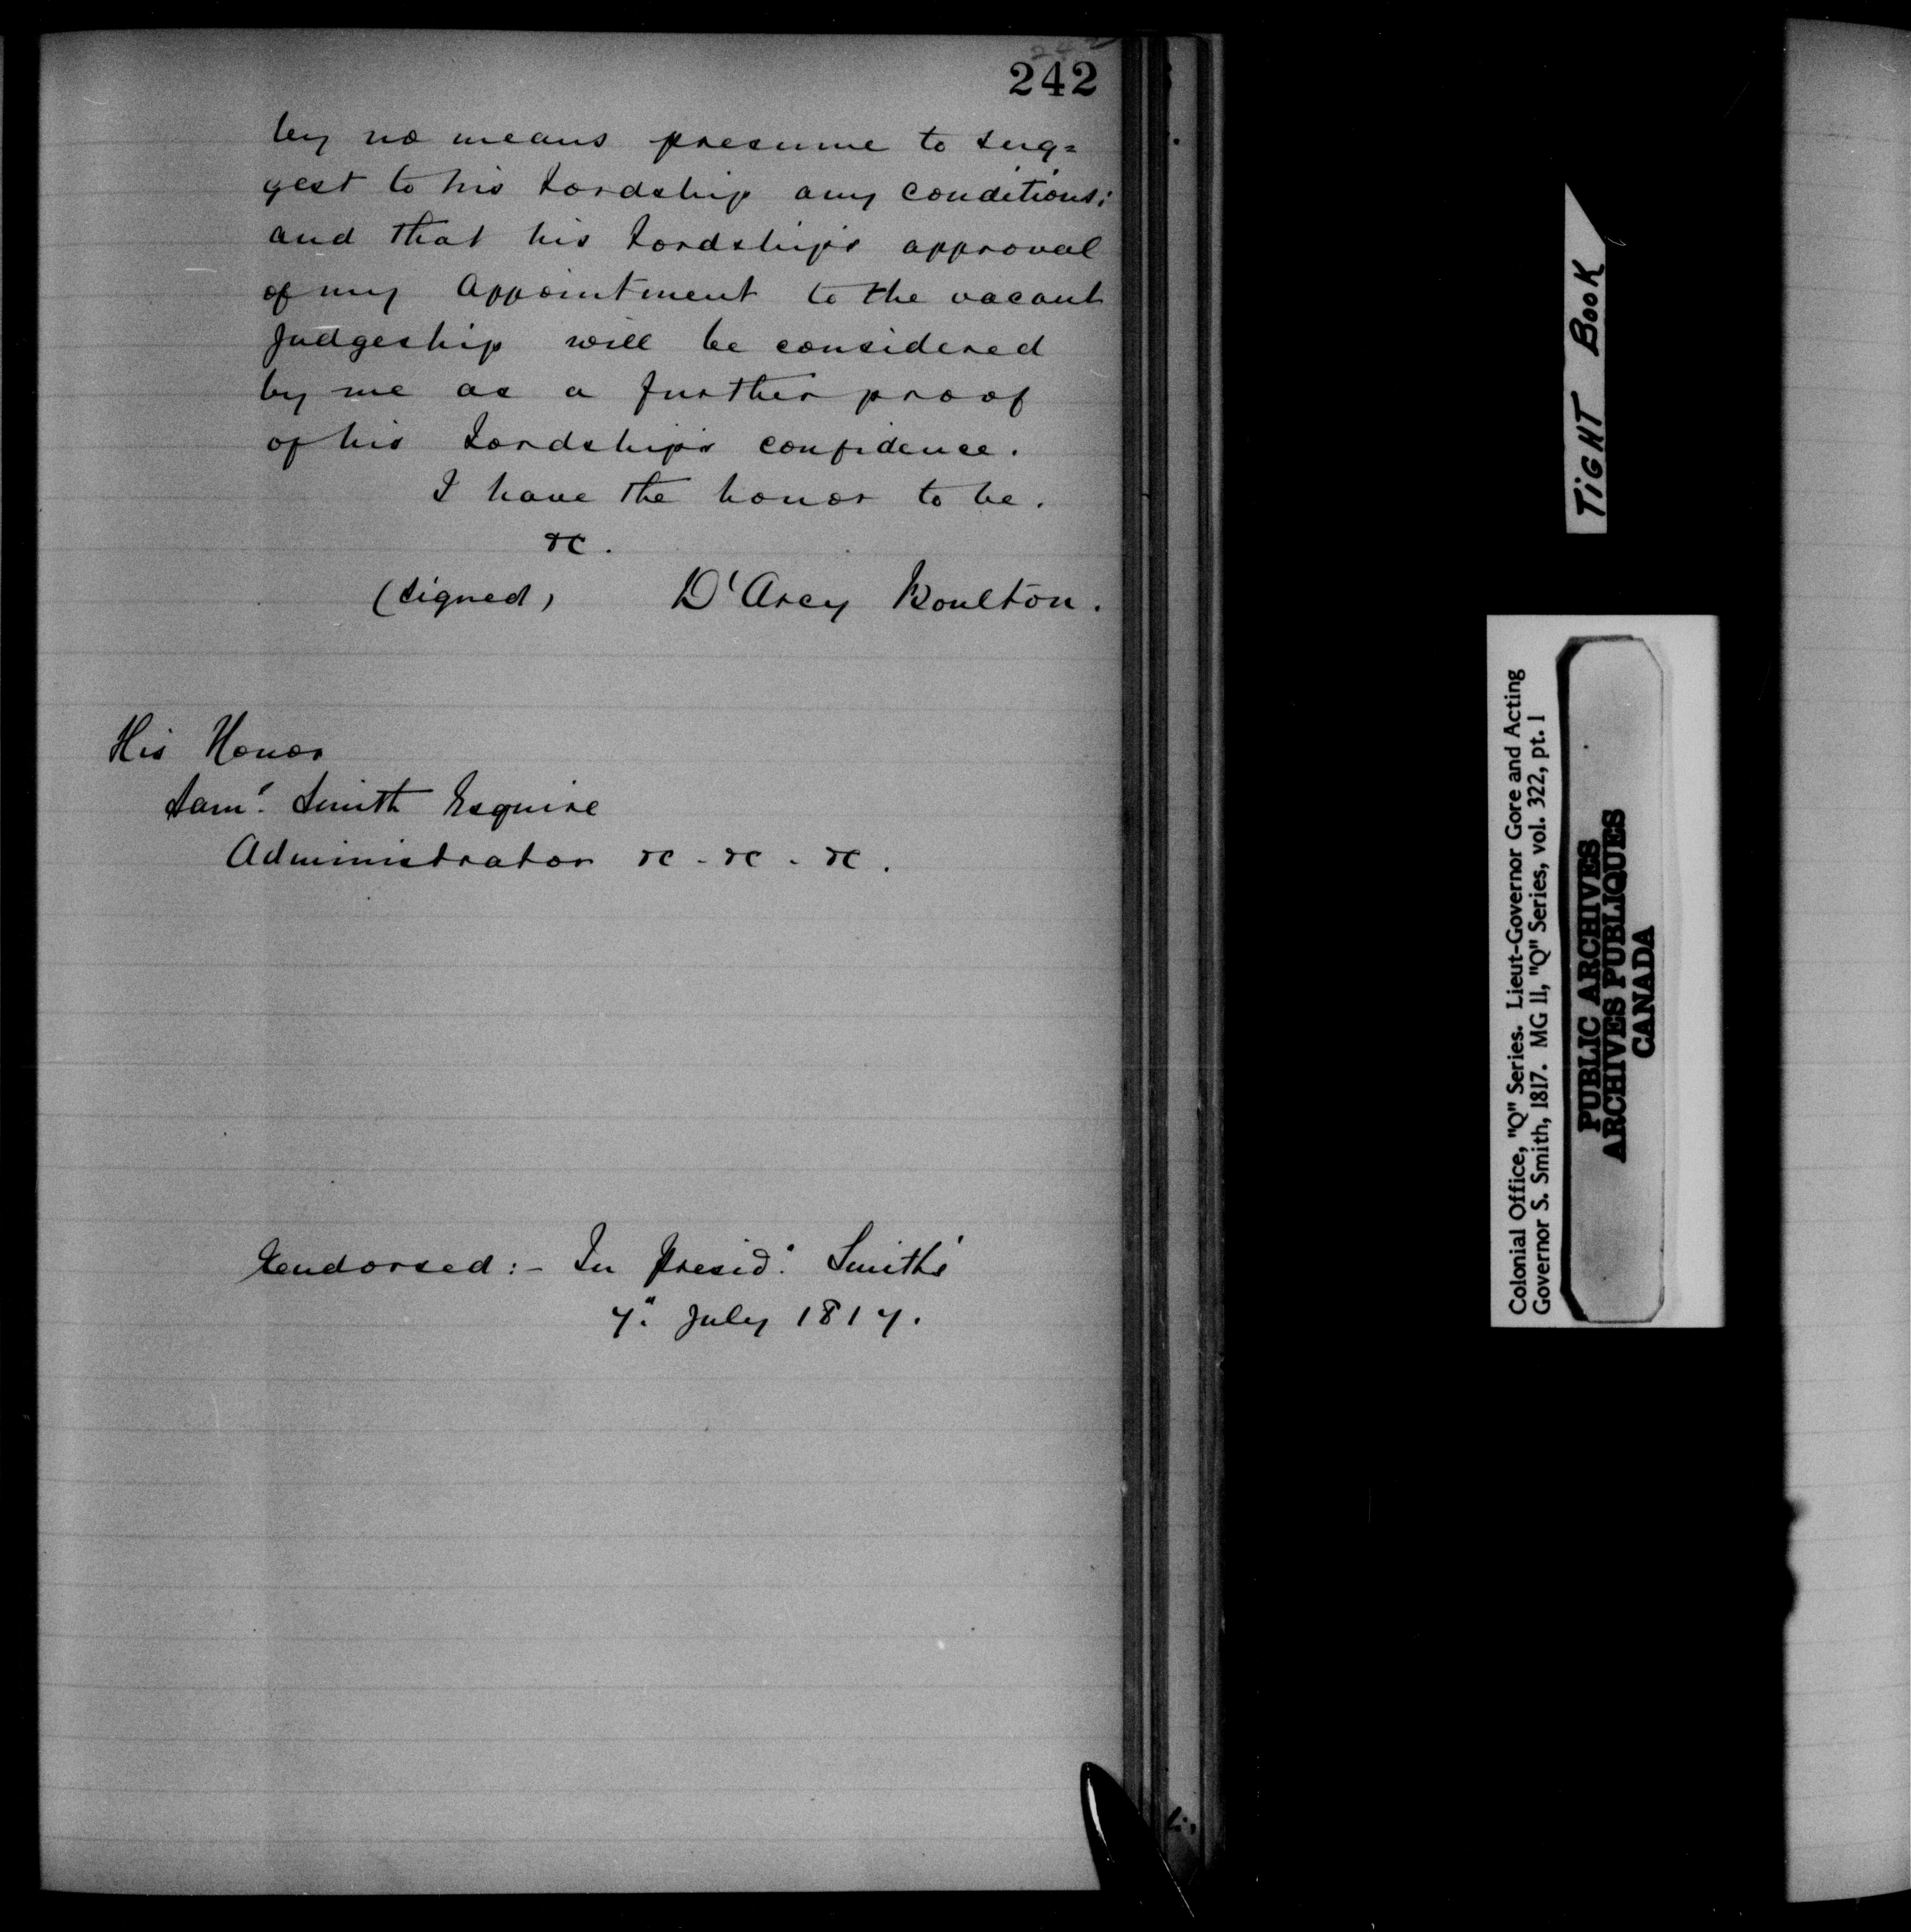 242
by no means presume to sug=
gest to his Lordship any conditions;
and that his Lordship's approval
of my appointment to the vacant
Judgeship will be considered
by me as a further proof
of his Lordship's confidence.
I have the honor to be.
&c.
(signed) D'Arcy Boulton.
His Honor
Saml. Smith Esquire
Administrator &c - &c - &c.
Endorsed:- In Presid.t Smith's
7th July 1817.
TIGHT BOOK
Colonial Office, "Q" Series. Lieut-Governor Gore and Acting
Governor S. Smith, 1817. MG 11, "Q" Series, vol. 322, pt. 1
PUBLIC ARCHIVES
ARCHIVES PUBLIQUES
CANADA